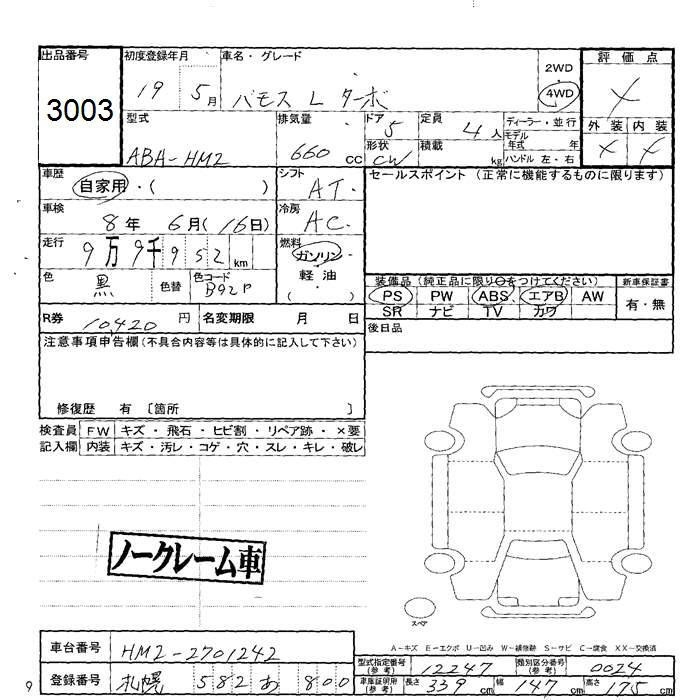 出品番号 初度登録年月 車名・グレード 評価点
3003 19 5月 バモス L ターボ 2WD 4WD ×
型式 排気量 ドア 5 定員 ディーラー・並行 外装 内装
ABA-HM2 660 cc 4人 モデル年式 年 × ×
形状 CW 積載 kg ハンドル 左・右
車歴 自家用・( ) シフト AT セールスポイント (正常に機能するものに限ります)
車検 8年 6月(16日) 冷房 AC
走行 9万9千952km 燃料 ガソリン
色 黒 色替 色コード B92P 軽油 ( )
装備品 (純正品に限り○をつけてください) 新車保証書
PS PW ABS エアB AW 有・無
SR ナビ TV カワ
R券 10,420円 名変期限 月 日 後日品
注意事項申告欄(不具合内容等は具体的に記入して下さい)
修復歴 有 〔箇所 〕
検査員 FW キズ・飛石・ヒビ割・リペア跡・×要
記入欄 内装 キズ・汚レ・コゲ・穴・スレ・キレ・破レ
ノークレーム車
スペア
A-キズ E-エクボ U-凹み W-補修跡 S-サビ C-腐食 XX-交換済
車台番号 HM2-2701242 型式指定番号(参考) 12247 類別区分番号(参考) 0024
登録番号 札幌 582 あ 800 車庫証明用(参考) 長さ 339cm 幅 147cm 高さ 175cm
9